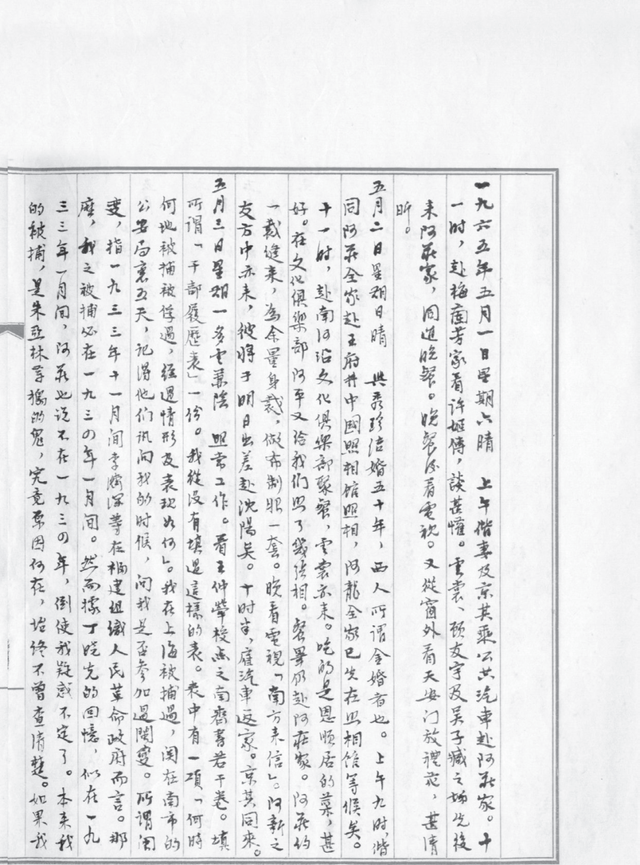 一九六五年五月一日星期六晴　上午偕妻及京其乘公共汽車赴阿莊家。十
一时，赴梅蘭芳家看许姬傳，談甚懽。雲裳、顾友宇及吴子臧之场先後
来阿莊家，同進晚餐。晚餐后看電視。又從窗外看天安门放禮花，甚清
晰。
五月二日星期日晴　與秀珍结婚五十年，西人所谓金婚者也。上午九时偕
同阿莊全家赴王府井中國照相馆照相，阿龍全家已先在照相馆等候矣。
十一时，赴南河沿文化俱樂部聚餐，雲裳亦来。吃的是恩顺居的菜，甚
好。在文化俱樂部阿平又给我们照了幾张相。餐畢仍赴阿莊家。阿莊约
一裁缝来，為余量身裁，做布制服一套。晚看電視「南方来信」。阿新之
友方中亦来，彼將于明日出差赴沈陽矣。十时半，雇汽車返家。京其同来。
五月三日星期一多雲兼陰　照常工作。看王仲犖校点之南齊書若干卷。填
所谓「干部履歷表」一份。我從没有填過這樣的表。表中有一項「何時
何地被捕被俘過，經過情形及表现如何」。我在上海被捕過，関在南市的
公安局裏五天，記得他们讯问我的时候，问我是否参加過閩變。所谓閩
變，指一九三三年十一月间李濟深等在福建组織人民革命政府而言。那
麽，我之被捕必在一九三四年一月间。然而據丁曉先的回憶，似在一九
三三年一月间，阿莊也说不在一九三四年，倒使我疑惑不定了。本来我
的被捕，是朱亞林等搗的鬼，究竟原因何在，始终不曾查清楚。如果我